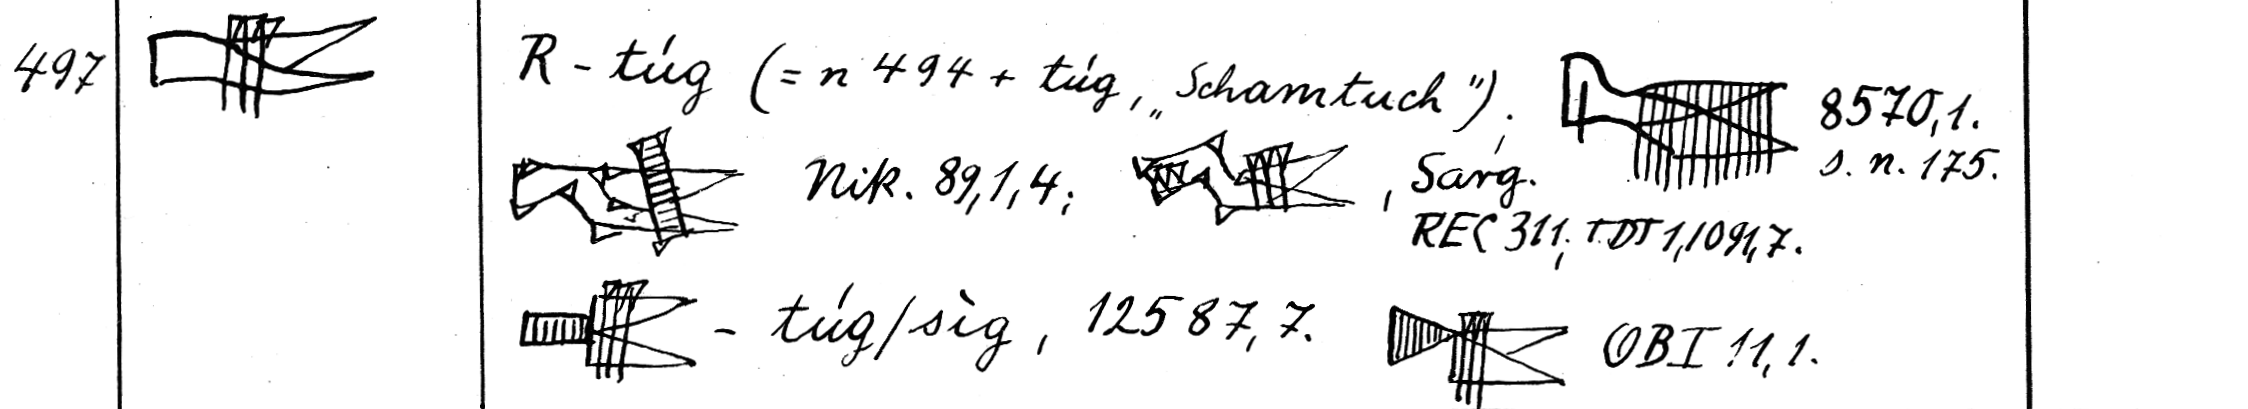 497 R - túg (= n 494 + túg, „Schamtuch"). 8570,1.
s. n. 175.
Nik. 89,1,4; , Sarg.
REC 311; TDT 1,1091,7.
- túg/sìg, 12587,7. OBI 11,1.